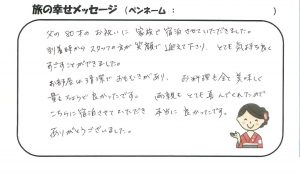 旅の幸せメッセージ（ペンネーム：　　　　）
父の80才のお祝いに 家族で宿泊させていただきました。
到着時からスタッフの方が笑顔で迎えて下り、とても気持ち良く
すごすことができました。
お部屋は清潔でおもむきがあり、お料理も全て美味しく
量もちょうど良かったです。両親もとても喜んでくれたので
こちらに宿泊させていただき 本当に良かったです。
ありがとうございました。